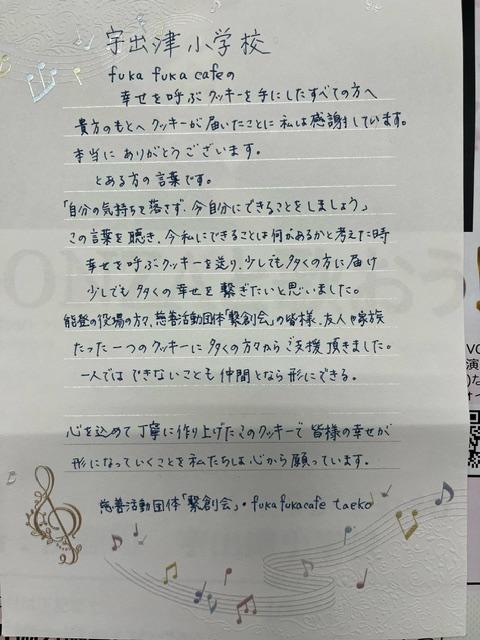 宇出津小学校
fuka fuka cafeの
幸せを呼ぶクッキーを手にしたすべての方へ
貴方のもとへクッキーが届いたことに私は感謝しています。
本当にありがとうございます。
とある方の言葉です。
「自分の気持ちを落さず、今自分にできることをしましょう」
この言葉を聴き、今私にできることは何があるかと考えた時
幸せを呼ぶクッキーを送り、少しでも多くの方に届け
少しでも多くの幸せを繋ぎたいと思いました。
能登の役場の方々、慈善活動団体「繋創会」の皆様、友人や家族
たった一つのクッキーに多くの方々からご支援頂きました。
一人ではできないことも仲間となら形にできる。
心を込めて丁寧に作り上げたこのクッキーで皆様の幸せが
形になっていくことを私たちは心から願っています。
慈善活動団体「繋創会」・fukafukacafe taeko